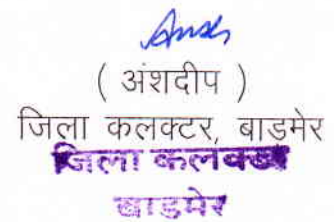 ( अंशदीप )
जिला कलक्टर, बाडमेर
जिला कलक्टर
बाडमेर